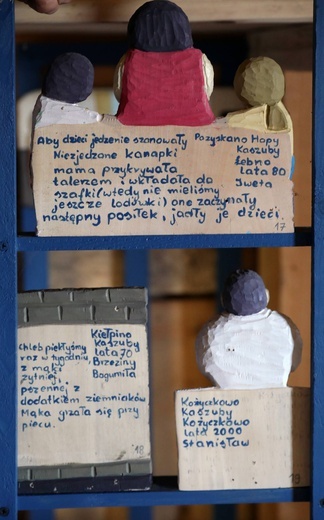 Aby dzieci jedzenie szanowały
Niezjedzone kanapki
mama przykrywała
talerzem i wkładała do
szafki (wtedy nie mieliśmy
jeszcze lodówki) ono zaczynały
następny posiłek, jadły je dzieci.
Pozyskano Hopy
Kaszuby
Łebno
Lata 80
Iweta
17
Chleb piekłyśmy
raz w tygodniu,
z mąki
żytniej,
pszennej z
dodatkiem ziemniaków
Mąka grzała się przy
piecu.
Kiełpino
Kaszuby
lata 70
Brzeziny
Bogumiła
18
Kożyczkowo
Kaszuby
Kożyczkowo
lata 2000
Stanisław
19